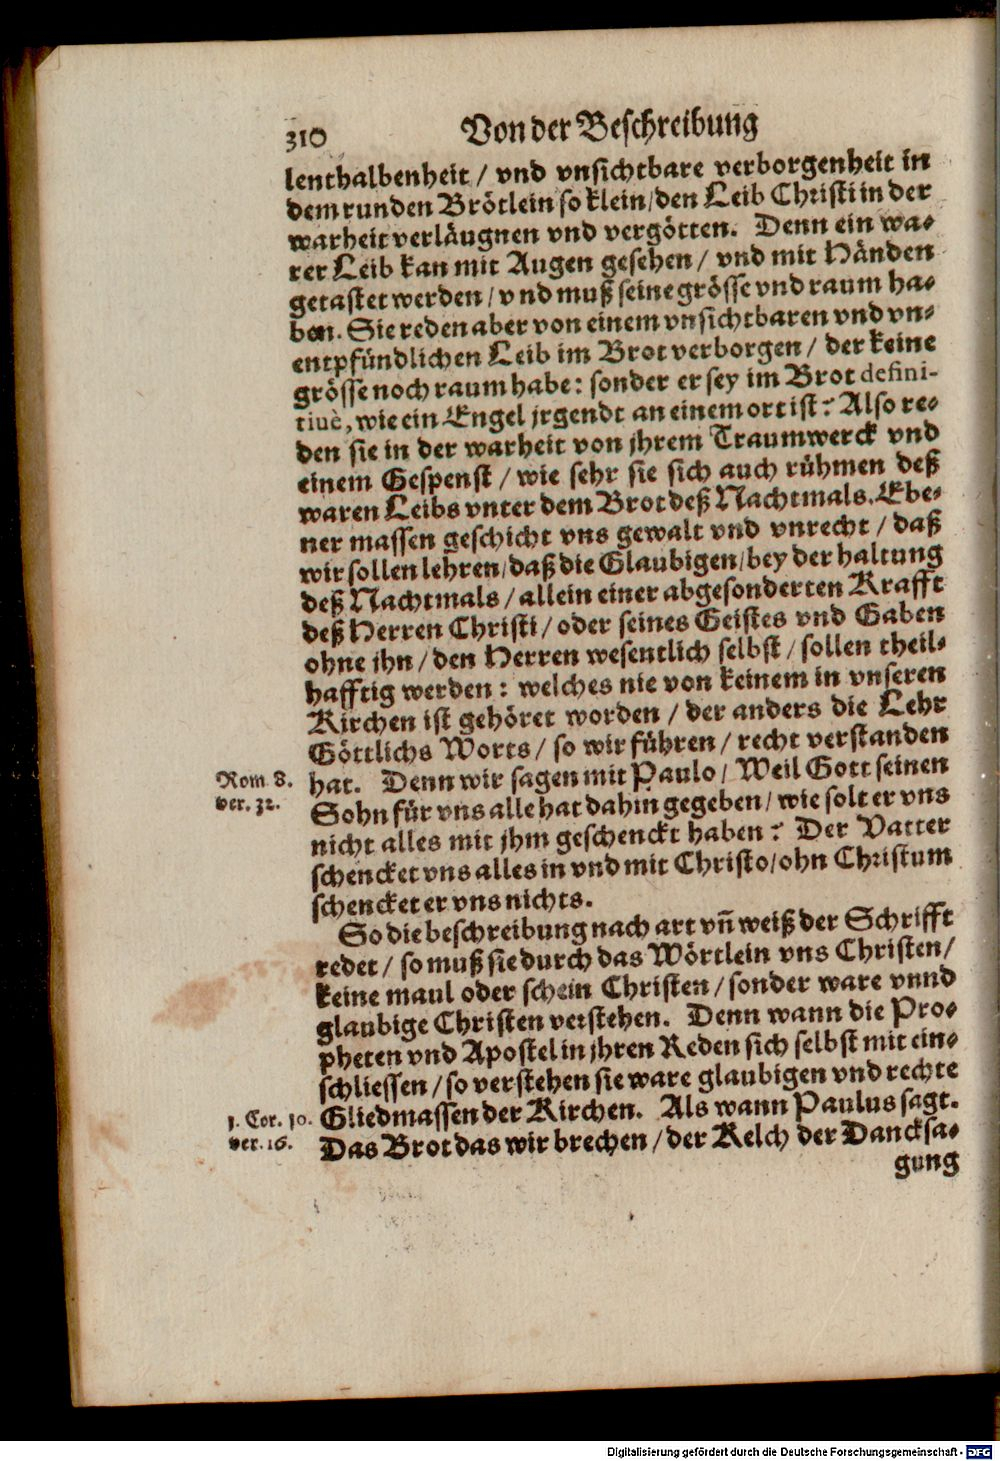 310 Von der Beschreibung
lenthalbenheit / vnd vnsichtbare verborgenheit in
dem runden Brötlein so klein / den Leib Christi in der
warheit verläugnen vnd vergötten. Denn ein wa-
rer Leib kan mit Augen gesehen / vnd mit Händen
getastet werden / vnd muß seine grösse vnd raum ha-
ben. Sie reden aber von einem vnsichtbaren vnd vn-
entpfündlichen Leib im Brot verborgen / der keine
grösse noch raum habe: sonder er sey im Brot defini-
tiuè, wie ein Engel jrgendt an einem ort ist? Also re-
den sie in der warheit von jhrem Traumwerck vnd
einem Gespenst / wie sehr sie sich auch rühmen deß
waren Leibs vnter dem Brot deß Nachtmals. Ebe-
ner massen geschicht vns gewalt vnd vnrecht / daß
wir sollen lehren / daß die Glaubigen / bey der haltung
deß Nachtmals / allein einer abgesonderten Krafft
deß Herren Christi / oder seines Geistes vnd Gaben
ohne jhn / den Herren wesentlich selbst / sollen theil-
hafftig werden: welches nie von keinem in vnseren
Kirchen ist gehöret worden / der anders die Lehr
Göttlichs Worts / so wir führen / recht verstanden
Rom. 8. hat. Denn wir sagen mit Paulo / Weil Gott seinen
ver. 32. Sohn für vns alle hat dahin gegeben / wie solt er vns
nicht alles mit jhm geschenckt haben? Der Vatter
schencket vns alles in vnd mit Christo / ohn Christum
schencket er vns nichts.
So die beschreibung nach art vñ weiß der Schrifft
redet / so muß sie durch das Wörtlein vns Christen /
keine maul oder schein Christen / sonder ware vnnd
glaubige Christen verstehen. Denn wann die Pro-
pheten vnd Apostel in jhren Reden sich selbst mit ein-
schliessen / so verstehen sie ware glaubigen vnd rechte
1. Cor. 10. Gliedmassen der Kirchen. Als wann Paulus sagt.
ver. 16. Das Brot das wir brechen / der Kelch der Dancksa-
gung
Digitalisierung gefördert durch die Deutsche Forschungsgemeinschaft - DFG